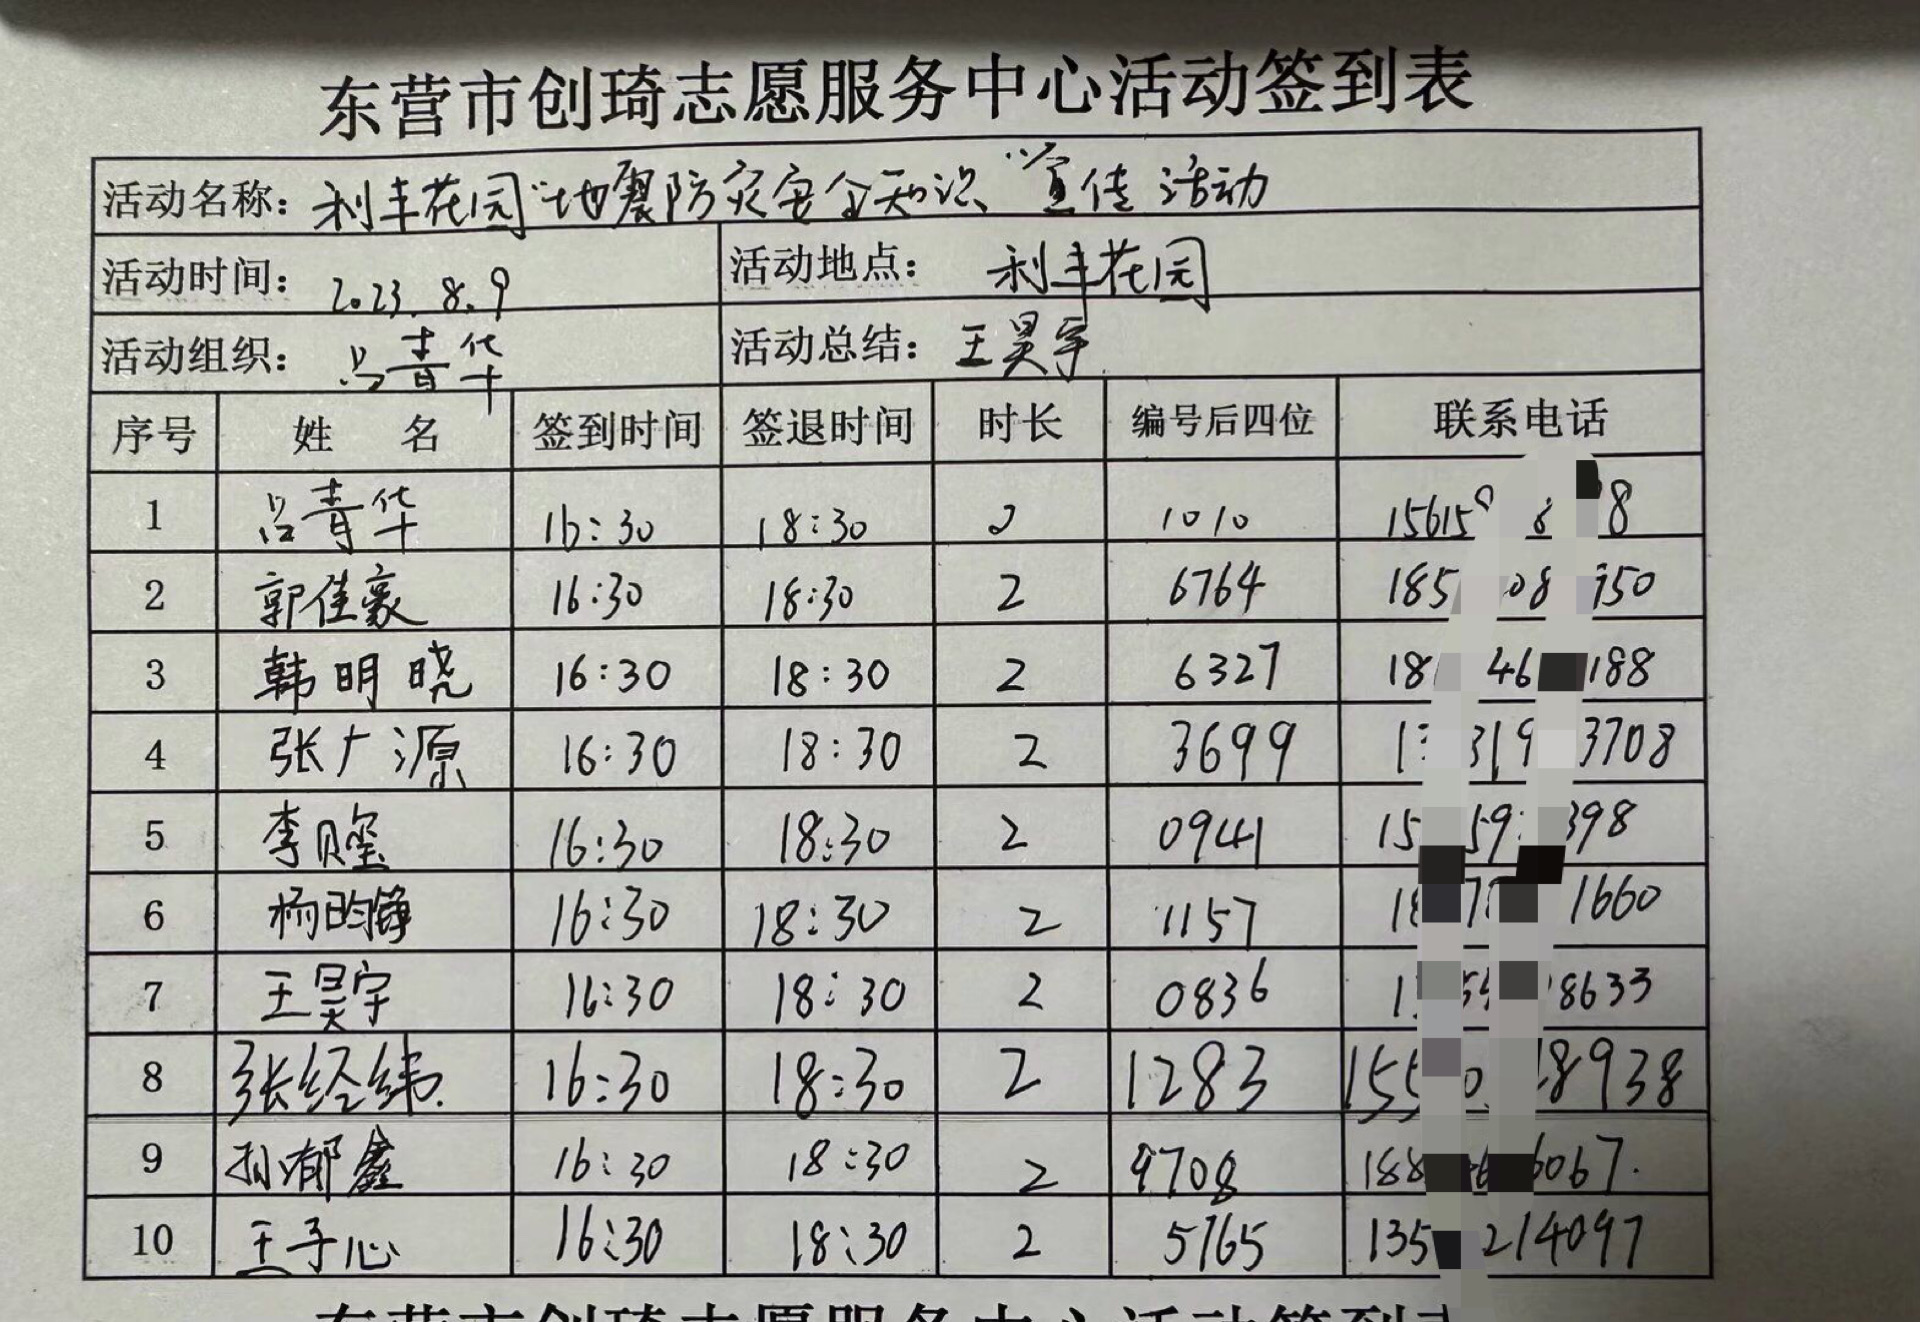 东营市创琦志愿服务中心活动签到表
活动名称：利丰花园“地震防灾安全知识”宣传活动
活动时间：2023.8.9 活动地点：利丰花园
活动组织：吕青华 活动总结：王昊宇
序号 姓名 签到时间 签退时间 时长 编号后四位 联系电话
1 吕青华 16:30 18:30 2 1010 15615 8 8
2 郭佳豪 16:30 18:30 2 6764 185 08 150
3 韩明晓 16:30 18:30 2 6327 18 46 188
4 张广源 16:30 18:30 2 3699 1 319 3708
5 李 16:30 18:30 2 0941 15 59 398
6 杨昀铮 16:30 18:30 2 1157 18 7 1660
7 王昊宇 16:30 18:30 2 0836 1 8633
8 张经纬 16:30 18:30 2 1283 155 0 8938
9 孙郁鑫 16:30 18:30 2 9708 188 6 6067
10 王子心 16:30 18:30 2 5765 135 214097
东营市创琦志愿服务中心活动签到表